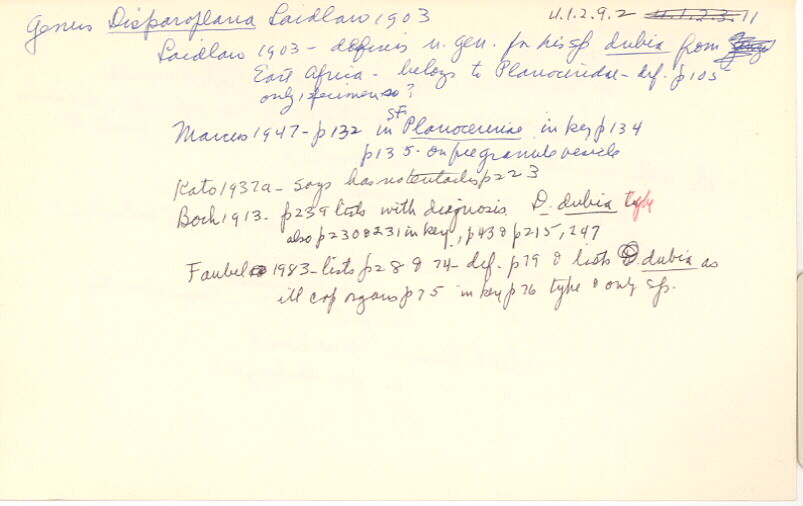 Genus Disparoplana Laidlaw 1903 4.1.2.9.2 4.1.2.3.11
Laidlaw 1903 - defines n. gen. for his sp dubia from
East Africa - belongs to Planoceridae - def. p 105
only 1 specimen so?
Marcus 1947 - p 132 in SF. Planocerinae in key p 134
p 135 - on free granule vesicle
Kato 1937a - says has no tentacles p 223
Bock 1913 - p 239 lists with diagnosis. D. dubia type
also p 230 & 231 in key, p 43 & p 215, 247
Faubel 1983 - lists p 28 & 74 - def. p 79 & lists D. dubia as
ill cop organs p 75 in key p 76 type & only sp.